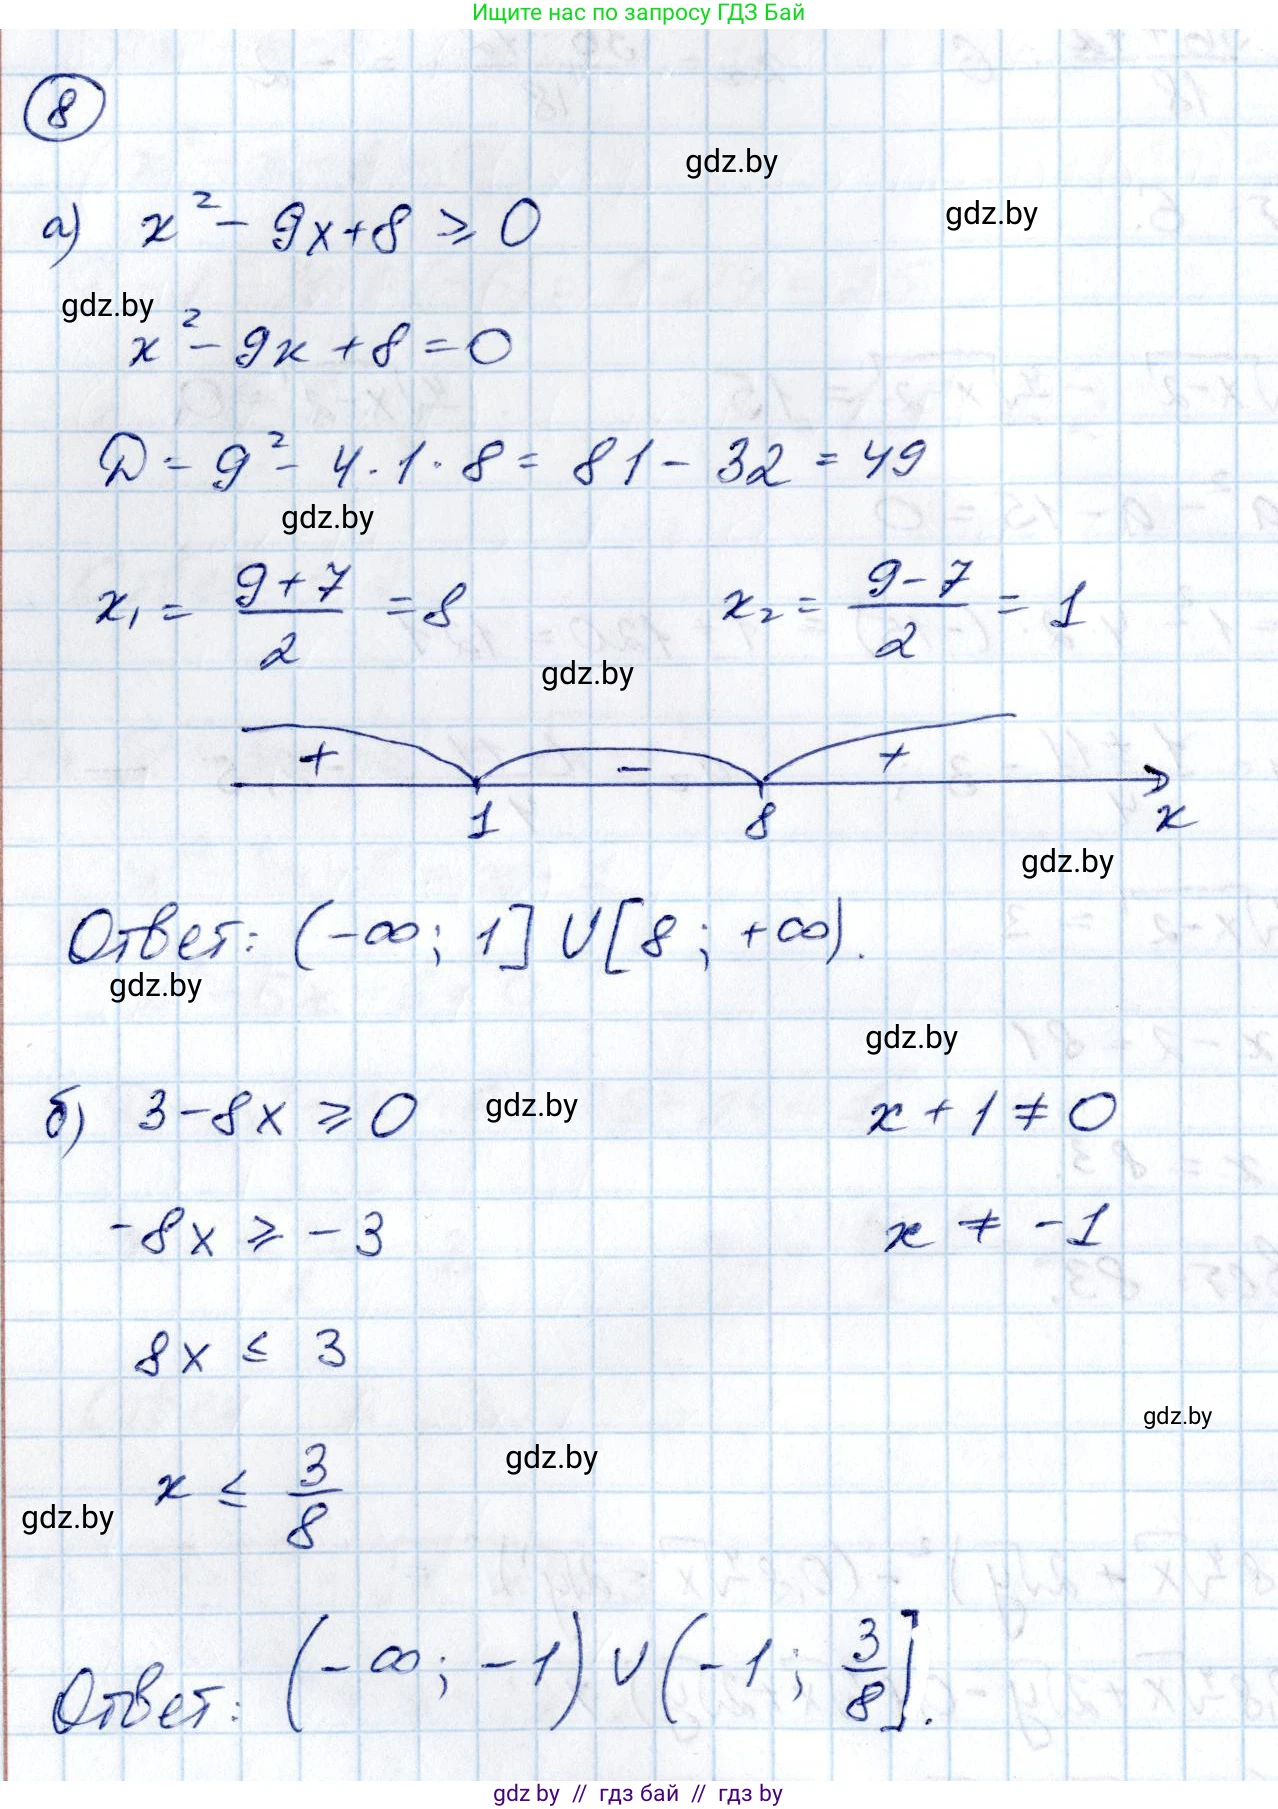 Ищите нас по запросу ГДЗ Бай
8
gdz.by
а) x² - 9x + 8 ⩾ 0
gdz.by
gdz.by
x² - 9x + 8 = 0
D = 9² - 4 · 1 · 8 = 81 - 32 = 49
gdz.by
x₁ = (9+7)/2 = 8 x₂ = (9-7)/2 = 1
gdz.by
+ - +
1 8 x
gdz.by
Ответ: (-∞; 1] ∪ [8; +∞).
gdz.by
gdz.by
б) 3 - 8x ⩾ 0 gdz.by x + 1 ≠ 0
-8x ⩾ -3 x ≠ -1
8x ≤ 3
gdz.by
x ≤ 3/8 gdz.by
gdz.by
Ответ: (-∞; -1) ∪ (-1; 3/8].
gdz by // гдз бай // гдз by